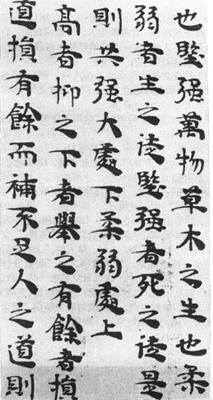 也堅强萬物草木之生也柔
弱者生之徒堅强者死之徒是
則共强大處下柔弱處上
髙者抑之下者舉之有餘者損
道損有餘而補不足人之道則